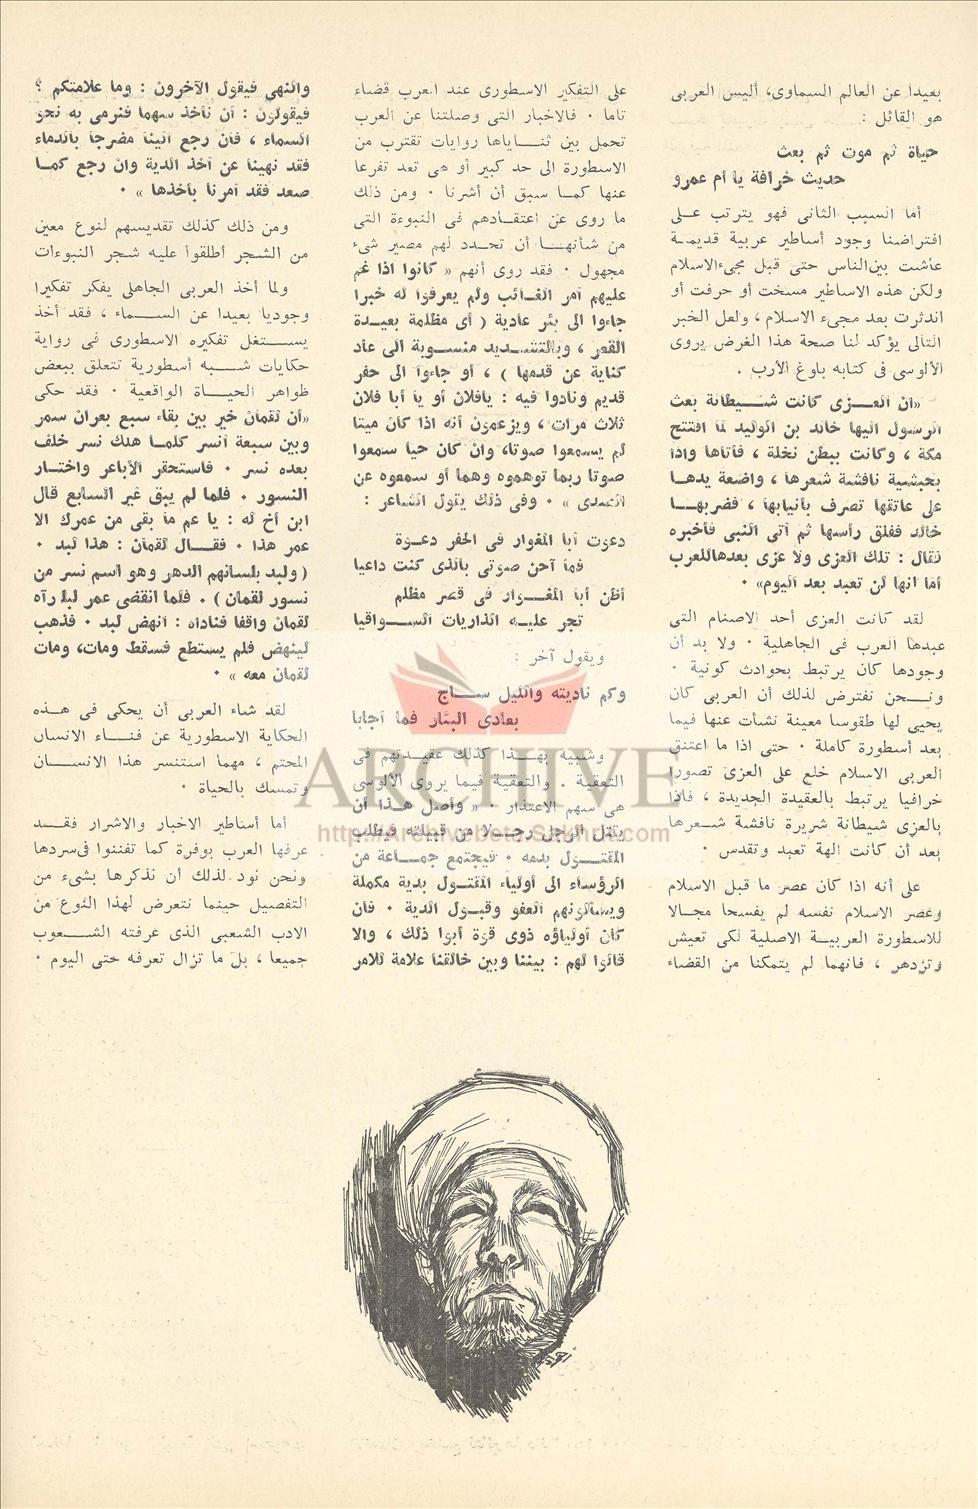 بعيدا عن العالم السماوى، أليس العربى
هو القائل :
حياة ثم موت ثم بعث
حديث خرافة يا أم عمرو
أما السبب الثانى فهو يترتب على
افتراضنا وجود أساطير عربية قديمة
عاشت بين الناس حتى قبل مجىء الاسلام
ولكن هذه الاساطير مسخت أو حرفت أو
اندثرت بعد مجىء الاسلام ، ولعل الخبر
التالى يؤكد لنا صحة هذا الغرض يروى
الألوسى فى كتابه بلوغ الأرب .
«ان العزى كانت شيطانة بعث
الرسول اليها خالد بن الوليد لما افتتح
مكة ، وكانت ببطن نخلة ، فأتاها واذا
بحبشية نافشة شعرها ، واضعة يدها
على عاتقها تصرف بأنيابها ، فضربها
خالد ففلق رأسها ثم أتى النبى فأخبره
فقال : تلك العزى ولا عزى بعدها للعرب
أما انها لن تعبد بعد اليوم» .
لقد كانت العزى أحد الاصنام التى
عبدها العرب فى الجاهلية . ولا بد أن
وجودها كان يرتبط بحوادث كونية .
ونحن نفترض لذلك أن العربى كان
يحيى لها طقوسا معينة نشأت عنها فيما
بعد أسطورة كاملة . حتى اذا ما اعتنق
العربى الاسلام خلع على العزى تصورا
خرافيا يرتبط بالعقيدة الجديدة ، فاذا
بالعزى شيطانة شريرة نافشة شعرها
بعد أن كانت الهة تعبد وتقدس .
على أنه اذا كان عصر ما قبل الاسلام
وعصر الاسلام نفسه لم يفسحا مجالا
للاسطورة العربية الاصلية لكى تعيش
وتزدهر ، فانهما لم يتمكنا من القضاء
على التفكير الاسطورى عند العرب قضاء
تاما . فالاخبار التى وصلتنا عن العرب
تحمل بين ثناياها روايات تقترب من
الاسطورة الى حد كبير أو هى تعد تفرعا
عنها كما سبق أن أشرنا . ومن ذلك
ما روى عن اعتقادهم فى النبوءة التى
من شأنها أن تحدد لهم مصير شىء
مجهول . فقد روى أنهم « كانوا اذا غم
عليهم أمر الغائب ولم يعرفوا له خبرا
جاءوا الى بئر عادية ( أى مظلمة بعيدة
القعر ، وبالتشديد منسوبة الى عاد
كناية عن قدمها ) ، أو جاءوا الى حفر
قديم ونادوا فيه : يافلان أو يا أبا فلان
ثلاث مرات ، ويزعمون أنه اذا كان ميتا
لم يسمعوا صوتا، وان كان حيا سمعوا
صوتا ربما توهموه وهما أو سمعوه عن
الصدى » . وفى ذلك يقول الشاعر :
دعوت أبا المغوار فى الحفر دعوة
فما آحن صوتى بالذى كنت داعيا
أظن أبا المغوار فى قعر مظلم
تجر عليه الذاريات السواقيا
ويقول آخر :
وكم ناديته والليل ساج
بعادى البئار فما أجابا
وشبيه بهذا كذلك عقيدتهم فى
التعقية . والتعقية فيما يروى الألوسى
هى سهم الاعتذار . « وأصل هذا أن
يقتل الرجل رجلا من قبيلته فيطلب
المقتول بدمه . فيجتمع جماعة من
الرؤساء الى أولياء المقتول بدية مكملة
ويسألونهم العفو وقبول الدية . فان
كان أولياؤه ذوى قوة أبوا ذلك ، والا
قالوا لهم : بيننا وبين خالقنا علامة للامر
والنهى فيقول الآخرون : وما علامتكم ؟
فيقولون : أن نأخذ سهما فنرمى به نحو
السماء ، فان رجع الينا مضرجا بالدماء
فقد نهينا عن أخذ الدية وان رجع كما
صعد فقد أمرنا بأخذها » .
ومن ذلك كذلك تقديسهم لنوع معين
من الشجر أطلقوا عليه شجر النبوءات
ولما أخذ العربى الجاهلى يفكر تفكيرا
وجوديا بعيدا عن السماء ، فقد أخذ
يستغل تفكيره الاسطورى فى رواية
حكايات شبه أسطورية تتعلق ببعض
ظواهر الحياة الواقعية . فقد حكى
«أن لقمان خير بين بقاء سبع بعران سمر
وبين سبعة أنسر كلما هلك نسر خلف
بعده نسر . فاستحقر الأباعر واختار
النسور . فلما لم يبق غير السابع قال
ابن أخ له : يا عم ما بقى من عمرك الا
عمر هذا . فقال لقمان : هذا لبد .
( ولبد بلسانهم الدهر وهو اسم نسر من
نسور لقمان ) . فلما انقضى عمر لبد رآه
لقمان واقفا فناداه : أنهض لبد . فذهب
لينهض فلم يستطع فسقط ومات، ومات
لقمان معه » .
لقد شاء العربى أن يحكى فى هذه
الحكاية الاسطورية عن فناء الانسان
المحتم ، مهما استنسر هذا الانسان
وتمسك بالحياة .
أما أساطير الاخبار والاشرار فقد
عرفها العرب بوفرة كما تفننوا فى سردها
ونحن نود لذلك أن نذكرها بشىء من
التفصيل حينما نتعرض لهذا النوع من
الادب الشعبى الذى عرفته الشعوب
جميعا ، بل ما تزال تعرفه حتى اليوم .
ARCHIVE
http://Archivebeta.Sakhrit.com